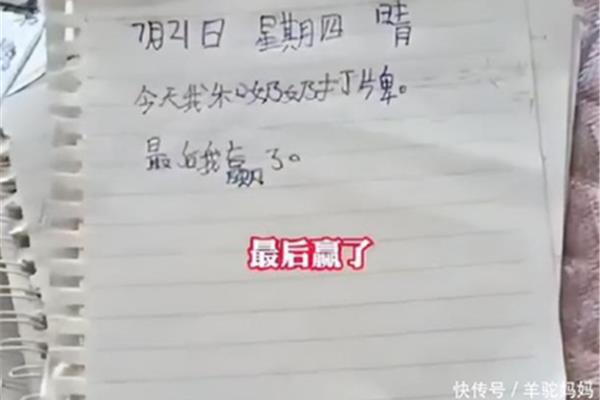 7月21日 星期四 晴
今天我和奶奶打牌。
最后我赢了。
最后赢了
快传号/羊驼妈妈